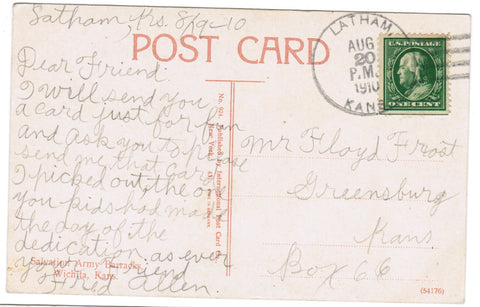 Latham, Krs. 8/29-10
POST CARD
LATHAM
AUG
20
P.M.
1910
KANS
U.S. POSTAGE
ONE CENT
Dear Friend:
I will send you
a card just for fun
and ask you to please
send me that card
I picked out the one
you kids had made
the day of the
dedication. as ever
your friend
Fred Allen.
Salvation Army Barracks,
Wichita, Kans.
No. 921. Published by International Post Card Co.
New York.
Mr Floyd Frost
Greensburg
Kans
Box 66
(54176)